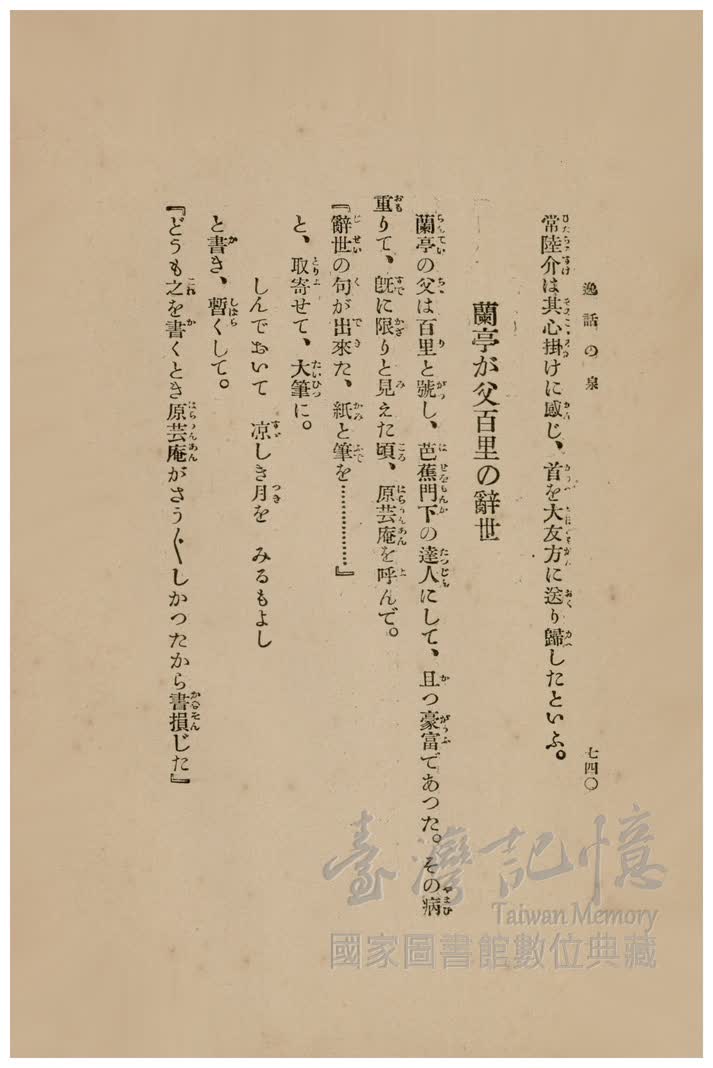 逸話の泉
七四〇
常陸介は其心掛けに感じ、首を大友方に送り歸したといふ。
蘭亭が父百里の辭世
蘭亭の父は百里と號し、芭蕉門下の達人にして、且つ豪富であつた。その病
重りて、既に限りと見えた頃、原芸庵を呼んで。
『辭世の句が出來た、紙と筆を………………』
と、取寄せて、大筆に。
しんでおいて　凉しき月を　みるもよし
と書き、暫くして。
『どうも之を書くとき原芸庵がさう〴〵しかつたから書損じた』
臺灣記憶
Taiwan Memory
國家圖書館數位典藏